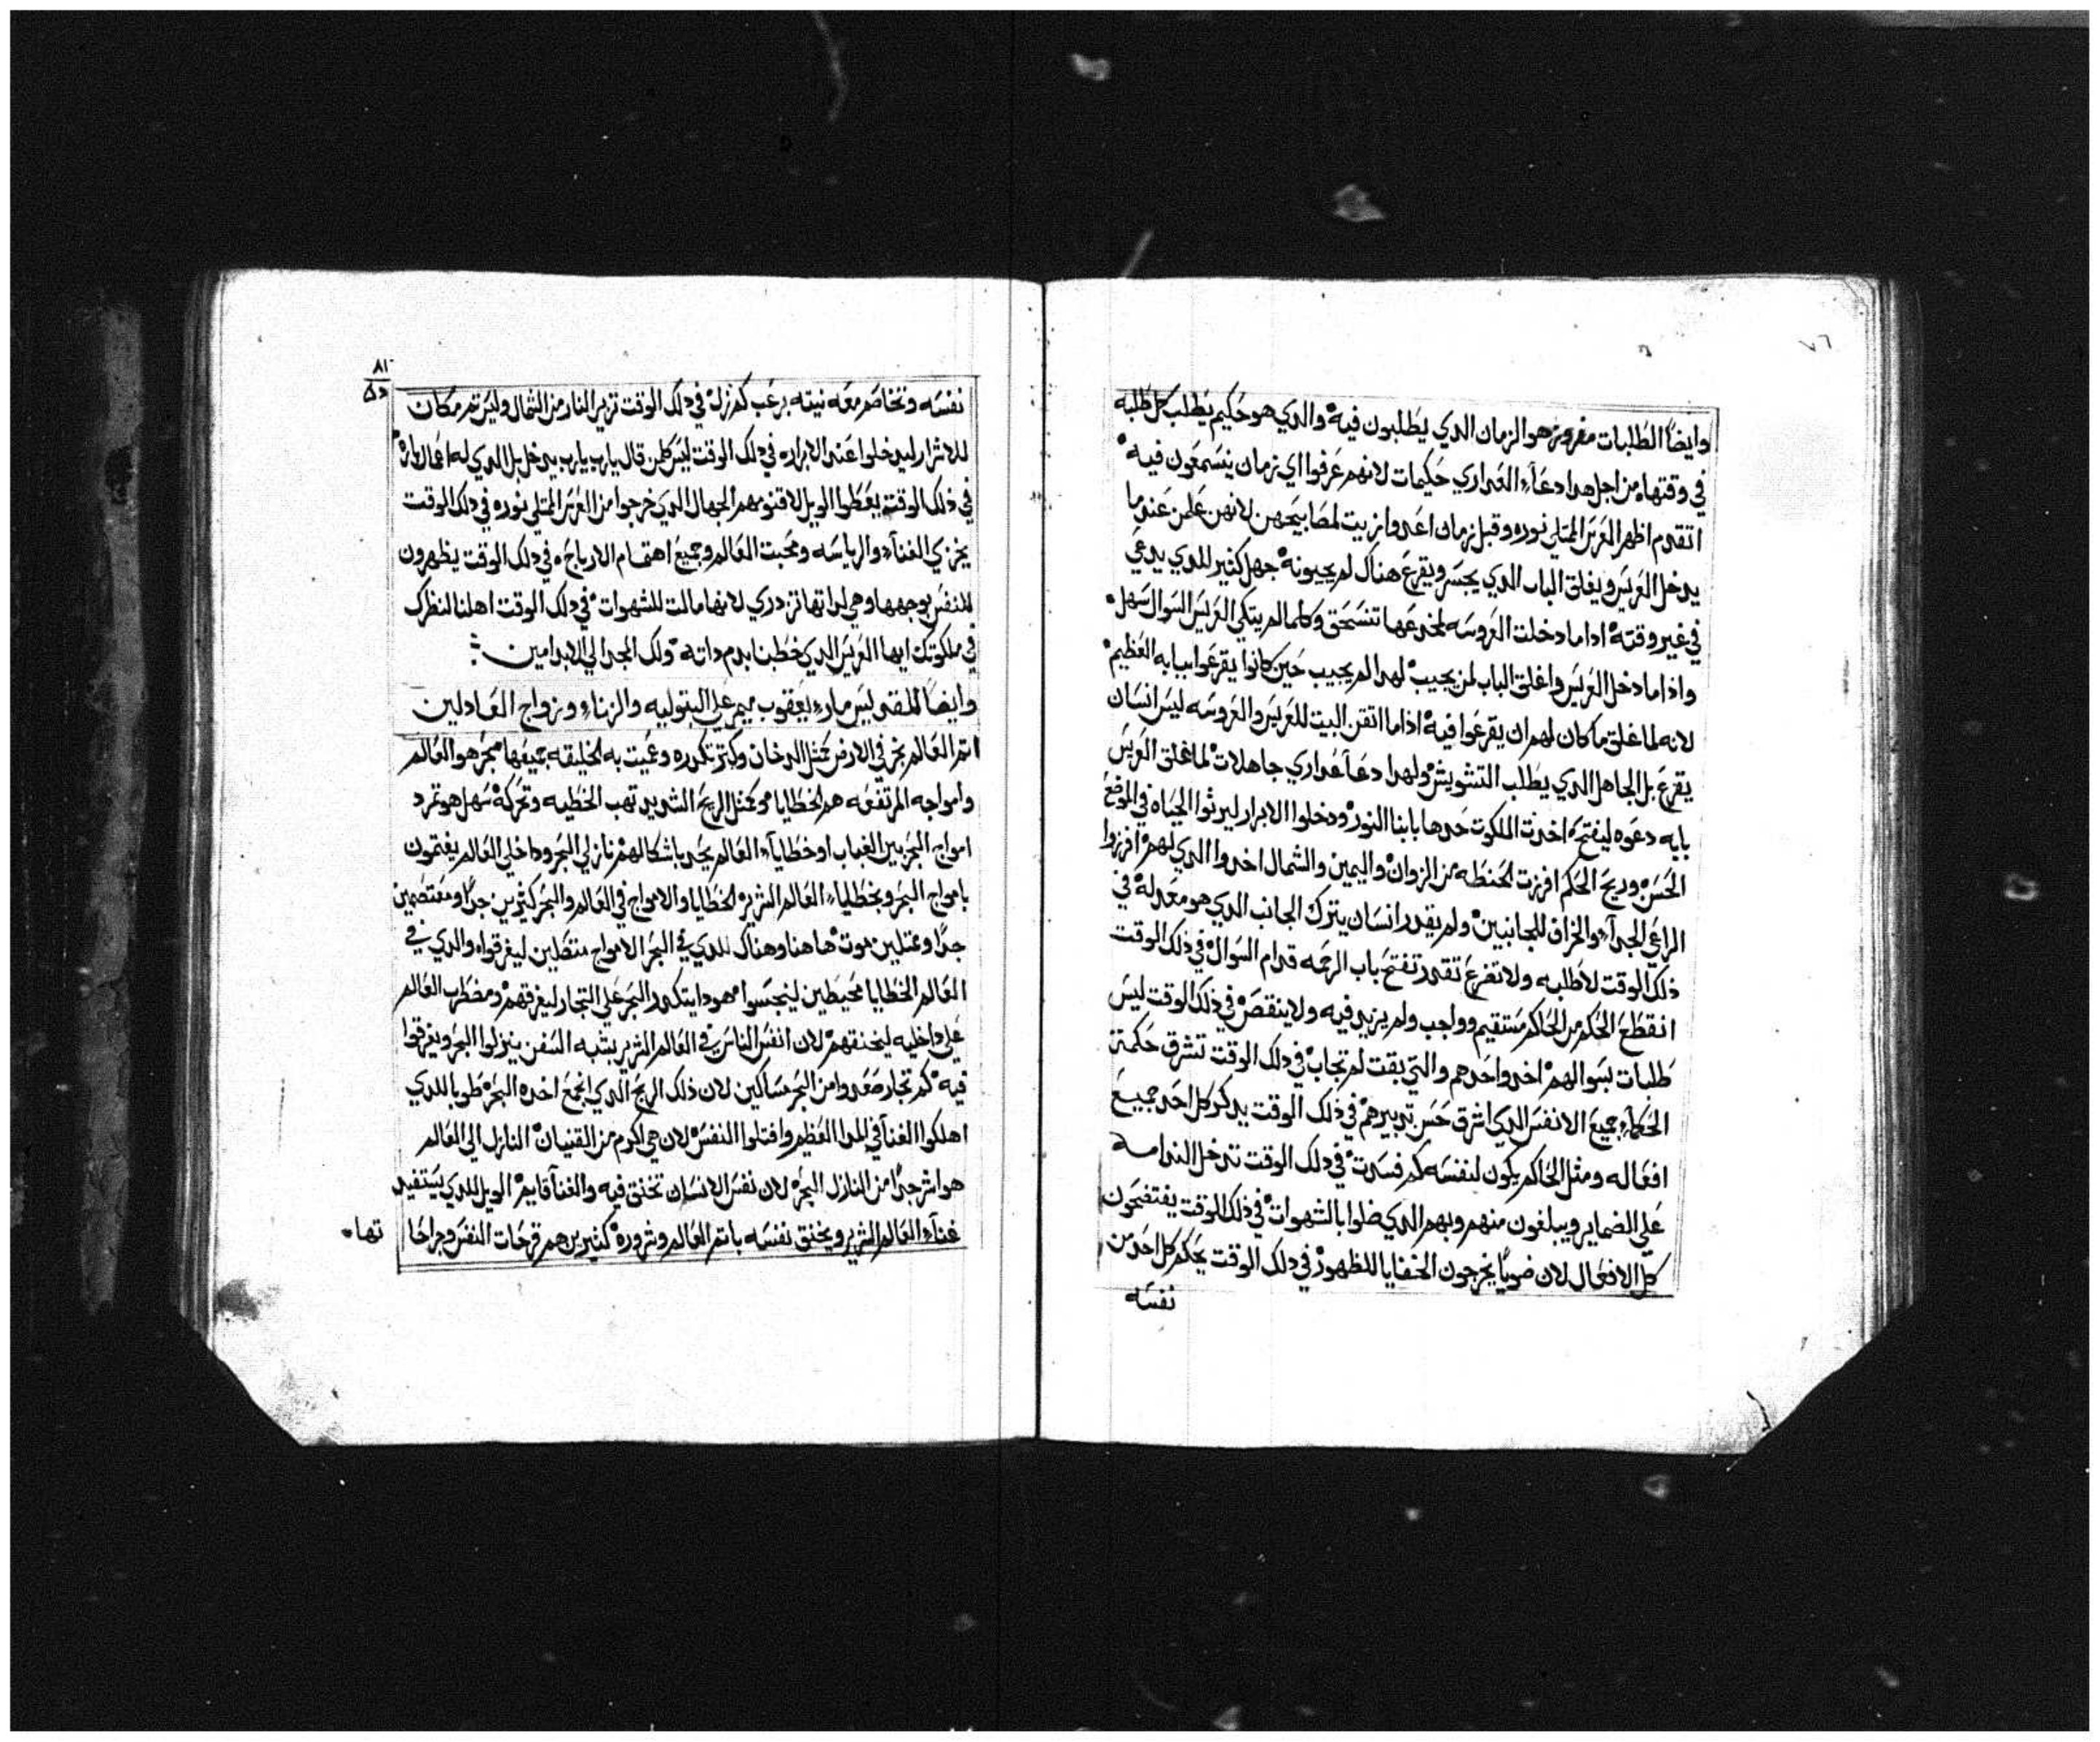 ٧٦
وايضًا الطلبات مفروز هو الزمان الدي يطلبون فيه والدي هو حكيم يطلب كل طلبه
في وقتها من اجل هدا دعآء العداري حكيمات لانهم عرفوا اي زمان ينسمعون فيه
اتقدم اظهر العريس الممتلي نوره وقبل زمان اعدوا زيت لمصابيحهن لانهن علمن عندما
يدخل العريس ويغلق الباب الدي يجسر ويقرع هناك لم يجيبونه جهل كثير للدي يدعي
في غير وقته اداما دخلت العروسه لمخدعها تنسحق وكلما لم يتكي العريس السوال سهل
واذا ما دخل العريس واغلق الباب لمن يجيب لهدا لم يجيب حين كانوا يقرعوا ببابه العظيم
لانه لما غلق ما كان لهم ان يقرعوا فيه اذا ما اتقن البيت للعريس والعروسه ليس انسان
يقرع بل الجاهل الدي يطلب التشويش ولهدا دعآ عداري جاهلات لما غلق العريس
بابه دعوه ليفتح اخذت الملكوت حدها بابنا النور ودخلوا الابرار ليرثوا الحياه في الموضع
الحسن وريح الحكم افرزت الحنطه من الزوان واليمين والشمال اخدوا الدي لهم افرزوا
الراعي الجدآء والخراف للجانبين ولم يقدر انسان يترك الجانب الدي هو معد له في
ذلك الوقت لا طلبه ولا تضرع تقدر تفتح باب الرحمه قدام السوال في ذلك الوقت
انقطع الحكم من الحاكم مستقيم وواجب ولم يزيد فيه ولا ينقص في ذلك الوقت ليس
طلبات بسوالهم اخدوا احدهم والتي بقت لم تجاب في دلك الوقت تشرق حكمة
الحكمآء جميع الانفس الدي اشرق حسن تدبيرهم في ذلك الوقت يدكر كل احد جميع
افعاله ومثل الحاكم يكون لنفسه كم فسدت في دلك الوقت تدخل الندامه
علي الضماير ويبلغون منهم وبهم الدي ضلوا بالشهوات في ذلك الوقت يفتضحون
كل الافعال لان ضويًا يخرجون الخفايا للظهور في دلك الوقت يحكم كل احد من
نفسه
٨١
نفسه وتخاصم معه نيته برعب كم زل في دلك الوقت تزير النار من الشمال وليس ثم مكان
للاشرار ليدخلوا عند الابرار في دلك الوقت ليس كلمن قال يارب يارب يدخل بل الدي له اعمال بارة
في ذلك الوقت يعطوا الويل لاقنومهم الجهال الدي خرجوا من العرس الممتلي نوره في دلك الوقت
يخزي الغنآء والرياسه ومحبت العالم وجميع اهتمام الارباح في دلك الوقت يظهرون
للنفس بوجهها وهي لداتها تزدري لانها مالت للشهوات في دلك الوقت اهلنا لنظرك
في ملكوتك ايها العريس الدي خطبنا بدم داته ولك المجد الي الابد امين
وايضًا للقديس ماري يعقوب ميمر علي البتوليه والزناء وزواج العادلين
اتم العالم بخر في الارض كمثل الدخان وكبتر تكدره وعميت به الخليقه جميعها بحر هو العالم
وامواجه المرتفعه هم الخطايا وكمثل الريح الشديد تهب الخطيه وتحركه سهل هو تمرد
امواج البحر بين الغباب او خطايآء العالم يحد باشكالهم نازلي البحر وداخلي العالم يغتمون
بامواج البحر وبخطايآء العالم الشرير الخطايا والامواج في العالم والبحر كثيرين جدًا ومغتصمين
جدًا وممتلين موت هاهنا وهناك للدي في البحر الامواج منتصلين ليغرقواه والدي في
العالم الخطايا محيطين لينجسوا مهودا يتكدر البحر علي التجار ليغرقهم ومضطرب العالم
علي داخليه ليخنقهم لان انفس الناس في العالم الشرير يشبه السفن ينزلوا البحر ويغرقوا
فيه كم تجار صعدوا من البحر مساكين لان ذلك الريح الدي انجمع اخده البحر طوبا للدي
اهلكوا الغنآ في المدا العظيم وافتلوا النفس لان هي اكرم من القنيان النازل الي العالم
هو اشر جدًا من النازل البحر لان نفس الانسان تختنق فيه والغنآ قايم الويل للدي يستفيد
غنآء العالم الشرير ويخنق نفسه باتم العالم وشروره كثيرين هم قرحات النفس وجراحا
تها